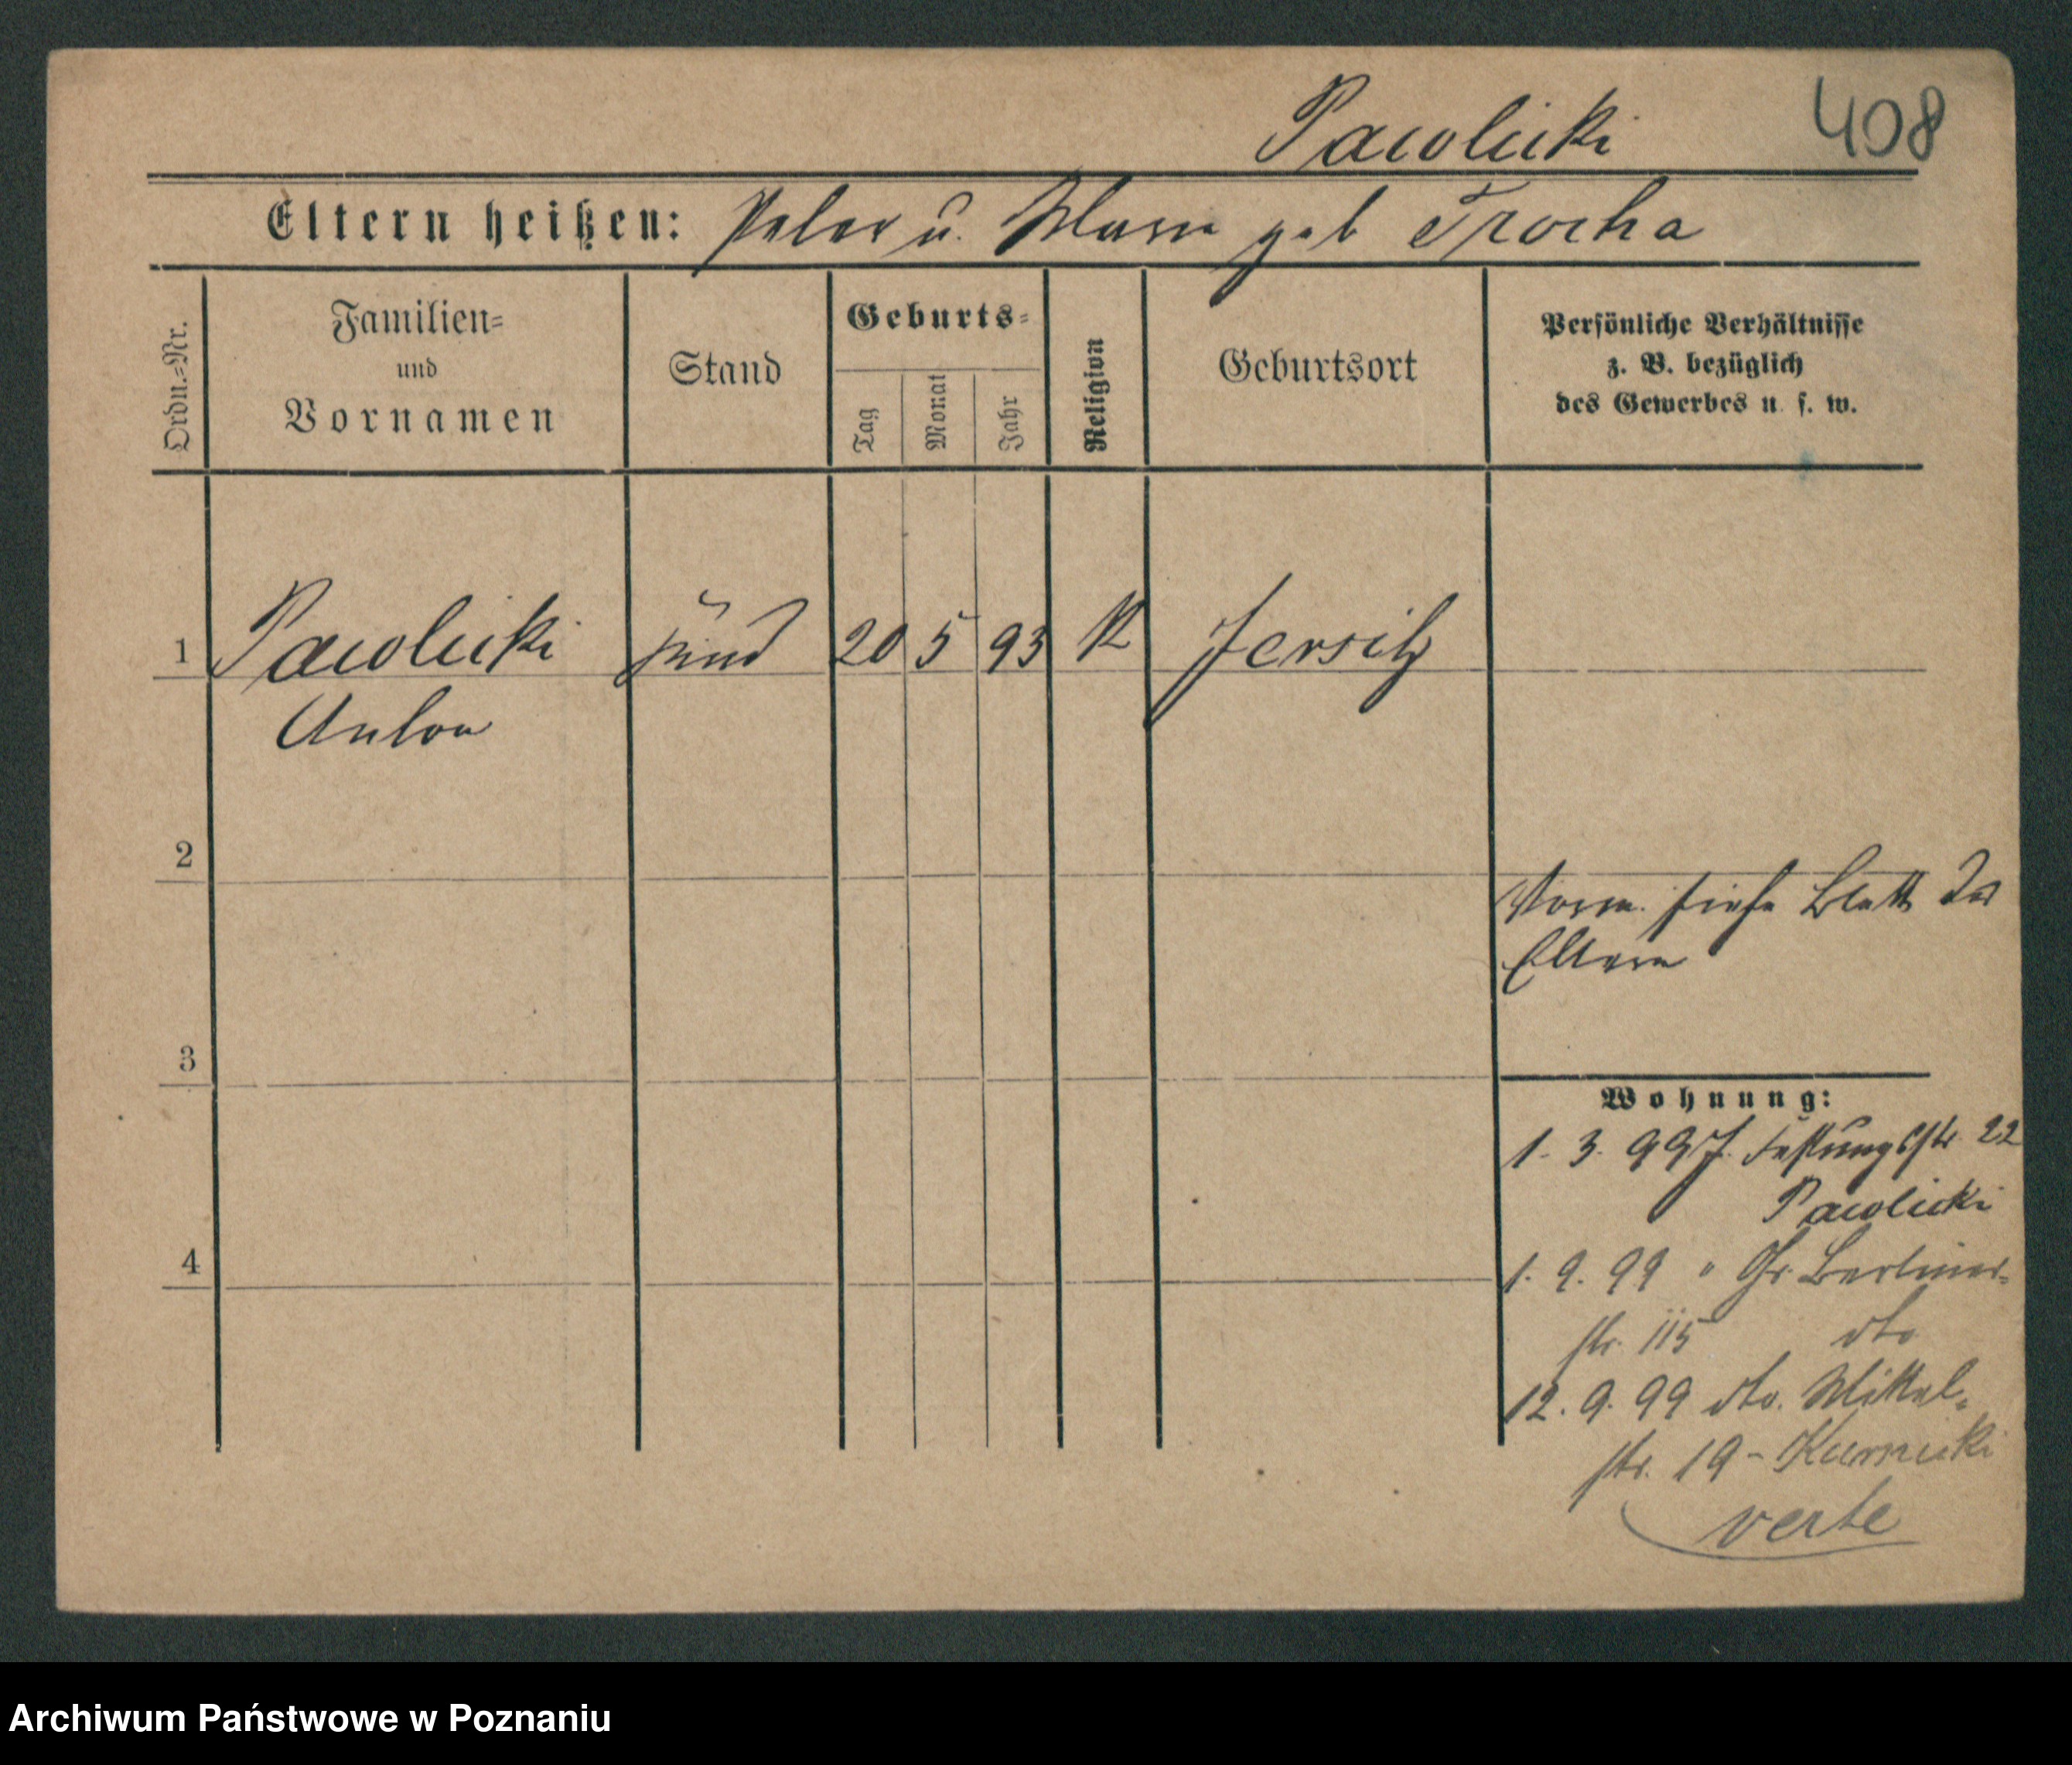 Pawlicki 408
Eltern heißen: Peter u. Marie geb Trocha
Ordn.-Nr.
Familien-
und
Vornamen
Stand
Geburts-
Tag
Monat
Jahr
Religion
Geburtsort
Persönliche Verhältnisse
z. B. bezüglich
des Gewerbes u. s. w.
1 Pawlicki 20 5 93 K Jersitz
Anton
2
Vorm. siehe Blatt der
Eltern
3
Wohnung:
1. 3. 99 J. Festungsstr. 22
Pawlicki
4
1. 9. 99 " Gr. Berliner-
str. 115 dto
12. 9. 99 dto. Mittel-
str. 19 - Kurnicki
verte
Archiwum Państwowe w Poznaniu